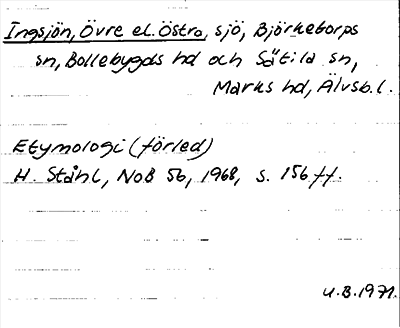 Ingsjön, Övre el. Östra, sjö, Björketorps
sn, Bollebygds hd och Sätila sn,
Marks hd, Älvsb.l.
Etymologi (förled)
H. Ståhl, NoB 56, 1968, s. 156 ff.
U.B.1971.